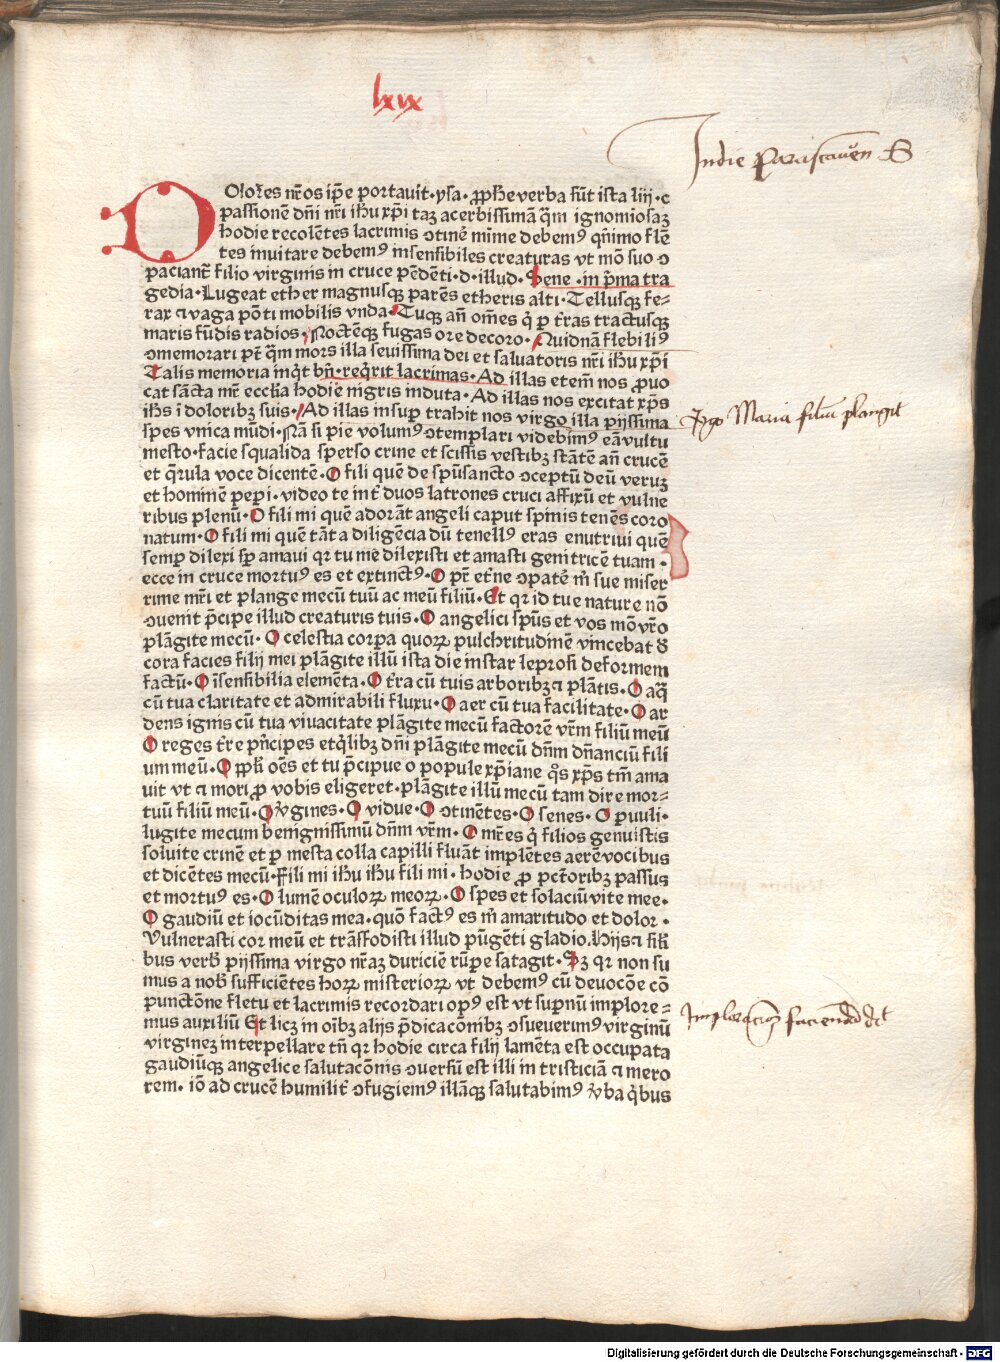 lxix
In die Parasceuen S
DOlores nr̄os ip̄e portauit·ysa·ꝓph̄e verba sūt ista liij·c
passionē dn̄i nr̄i ih̄u xp̄i taꝫ acerbissimā q̄m ignomiosaꝫ
hodie recolētes lacrimis ↄtinē mīme debemꝰ qn̄imo flē
tes inuitare debemꝰ insensibiles creaturas vt mō suo ↄ
pacianť filio virginis in cruce pēdēti·d·illud·Sene·in p̄ma tra
gedia·Lugeat ether magnusqꝫ parēs etheris alti·Tellusqꝫ fe⸗
rax ⁊ vaga pōti mobilis vnda·Tuqꝫ añ om̄es q̇ ꝑ t̄ras tractusqꝫ
maris fūdis radios·Noctēqꝫ fugas ore decoro·Quidnā flebiliꝰ
ↄmemorari pt̄ q̄m mors illa seuissima dei et saluatoris nr̄i ih̄u xp̄i
Talis memoria inq̇t bn̄·req̇rit lacrimas·Ad illas etem̄ nos ꝓuo
cat sācta mr̄ ecclīa hodie nigris induta·Ad illas nos excitat xp̄s
ih̄s ī doloribꝫ suis·Ad illas insuꝑ trahit nos virgo illa pijssima
spes vnica mūdi·Nā si pie volumꝰ ↄtemplari videbimꝰ eā vultu
mesto·facie squalida sperso crine et scissis vestibꝫ stātē añ crucē
et q̄rula voce dicentē·O fili quē de spū sancto ↄceptū deū veruꝫ
et hominē peperi·video te inť duos latrones cruci affixū et vulne
ribus plenū·O fili mi quē adorāt angeli caput spinis tenēs coro
natum·O fili mi quē tāta diligēcia dū tenellꝰ eras enutriui quē
semꝑ dilexi sꝑ amaui qꝛ tu me dilexisti et amasti genitricē tuam·
ecce in cruce mortuꝰ es et extinctꝰ·O pr̄ et̄ne ↄpatē m̄ sue miser
rime mr̄i et plange mecū tuū ac meū filiū·Et qꝛ id tue nature nō
ↄuenit p̄cipe illud creaturis tuis·O angelici spūs et vos mō vr̄o
plāgite mecū·O celestia corꝑa quoꝝ pulchritudinē vincebat d̄
cora facies filij mei plāgite illū ista die instar leprosi deformem
factū·O īsensibilia elemēta·O t̄ra cū tuis arboribꝫ ⁊ plātis·O aq̄
cū tua claritate et admirabili fluxu·O aer cū tua facilitate·O ar
dens ignis cū tua viuacitate plāgite mecū factorē vr̄m filiū meū
O reges t̄re pn̄cipes et q̇libꝫ dn̄i plāgite mecū dn̄m dn̄anciū fili
um meū·O ppl̄i oēs et tu p̄cipue o popule xp̄iane q̊s xp̄s tm̄ ama
uit vt ⁊ mori ꝓ vobis eligeret·plāgite illū mecū tam dire mor⸗
tuū filiū meū·O v̄gines·O vidue·O ↄtinētes·O senes·O ꝑuuli·
lugite mecum benignissimū dn̄m vr̄m·O mr̄es q̇ filios genuistis
soluite crinē et ꝑ mesta colla capilli fluāt implētes aerē vocibus
et dicētes mecū·Fili mi ih̄u ih̄u fili mi·hodie ꝓ pctōribꝫ passus
et mortuꝰ es·O lumē oculoꝝ meoꝝ·O spes et solaciū vite mee·
O gaudiū et iocūditas mea·quō factꝰ es m̄ amaritudo et dolor·
Vulnerasti cor meū et trāsfodisti illud pūgēti gladio.Hijs ⁊ sil̄i
bus verb̄ pijssima virgo nr̄aꝫ duriciē rūpe satagit·Sꝫ qꝛ non su
mus a nob̄ sufficiētes hoꝝ misterioꝝ vt debemꝰ cū deuocōe cō
punctōne fletu et lacrimis recordari opꝰ est vt suꝑnū implore⸗
mus auxiliū Et licꝫ in oībꝫ alijs p̄dicacōnibꝫ ↄsueuerimꝰ virginū
virgineꝫ interpellare tn̄ qꝛ hodie circa filij lamēta est occupata
gaudiūqꝫ angelice salutacōnis ↄuersū est illi in tristiciā ⁊ mero
rem·iō ad crucē humiliť ↄfugiemꝰ illāqꝫ salutabimꝰ v̄ba q̇bus
Virgo Maria filiū plangit
Imploracio
Digitalisierung gefördert durch die Deutsche Forschungsgemeinschaft - DFG